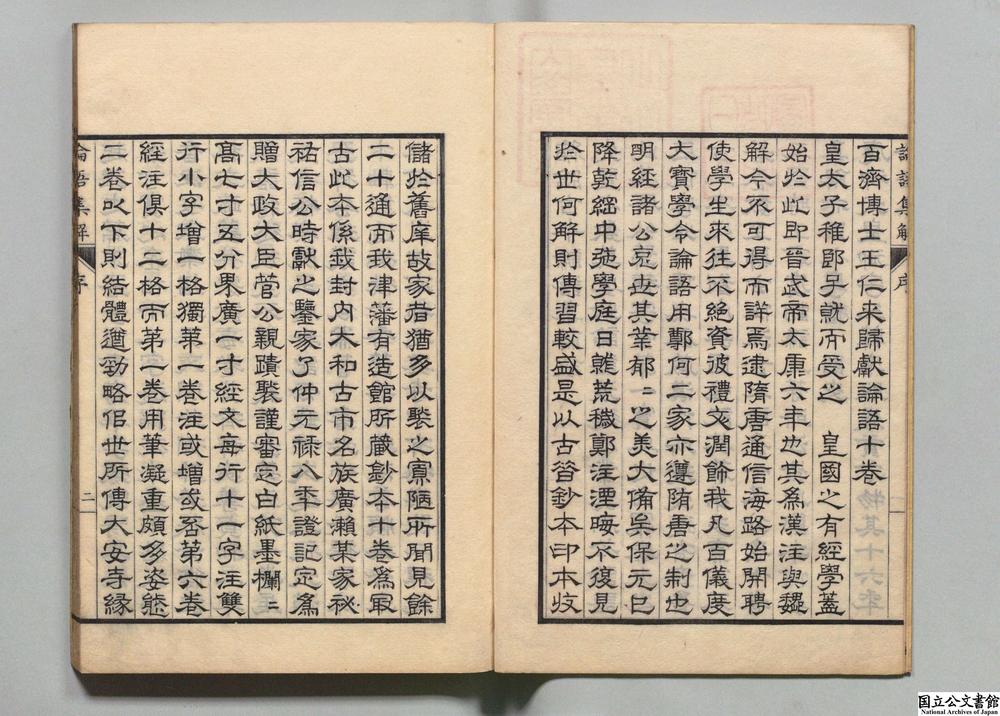 論語集解 序
百濟博士王仁来歸獻論語十卷
皇太子稚郎子就而受之 皇國之有經學蓋
始於此即晉武帝太康六年也其為漢注與魏
解今不可得而詳焉逮隋唐通信海路始開聘
使學生來往不絕資彼禮文潤飾我凡百儀度
大寶學令論語用鄭何二家亦遵隋唐之制也
明經諸公克世其業郁〻之美大備矣保元已
降乾綱中弛學庭日就荒穢鄭注湮晦不復見
於世何解則傳習較盛是以古昔鈔本印本

一
儲於舊庠故家者猶多以愁之寡陋所聞見餘
二十通而我津藩有造館所藏鈔本十卷為冣
古此本係我封內大和古市名族廣瀨某家祕
祐信公時獻之鑒家了仲元祿八年證記定為
贈太政大臣菅公親蹟愁謹審定白紙墨欄〻
高七寸五分界廣一寸經文每行十一字注雙
行小字增一格獨第一卷注或增或否第六卷
經注俱十二格而第一卷用筆凝重頗多姿態
二卷以下則結體遒勁略佀世所傳大安寺緣
論語集解 序
二
国立公文書館
National Archives of Japan